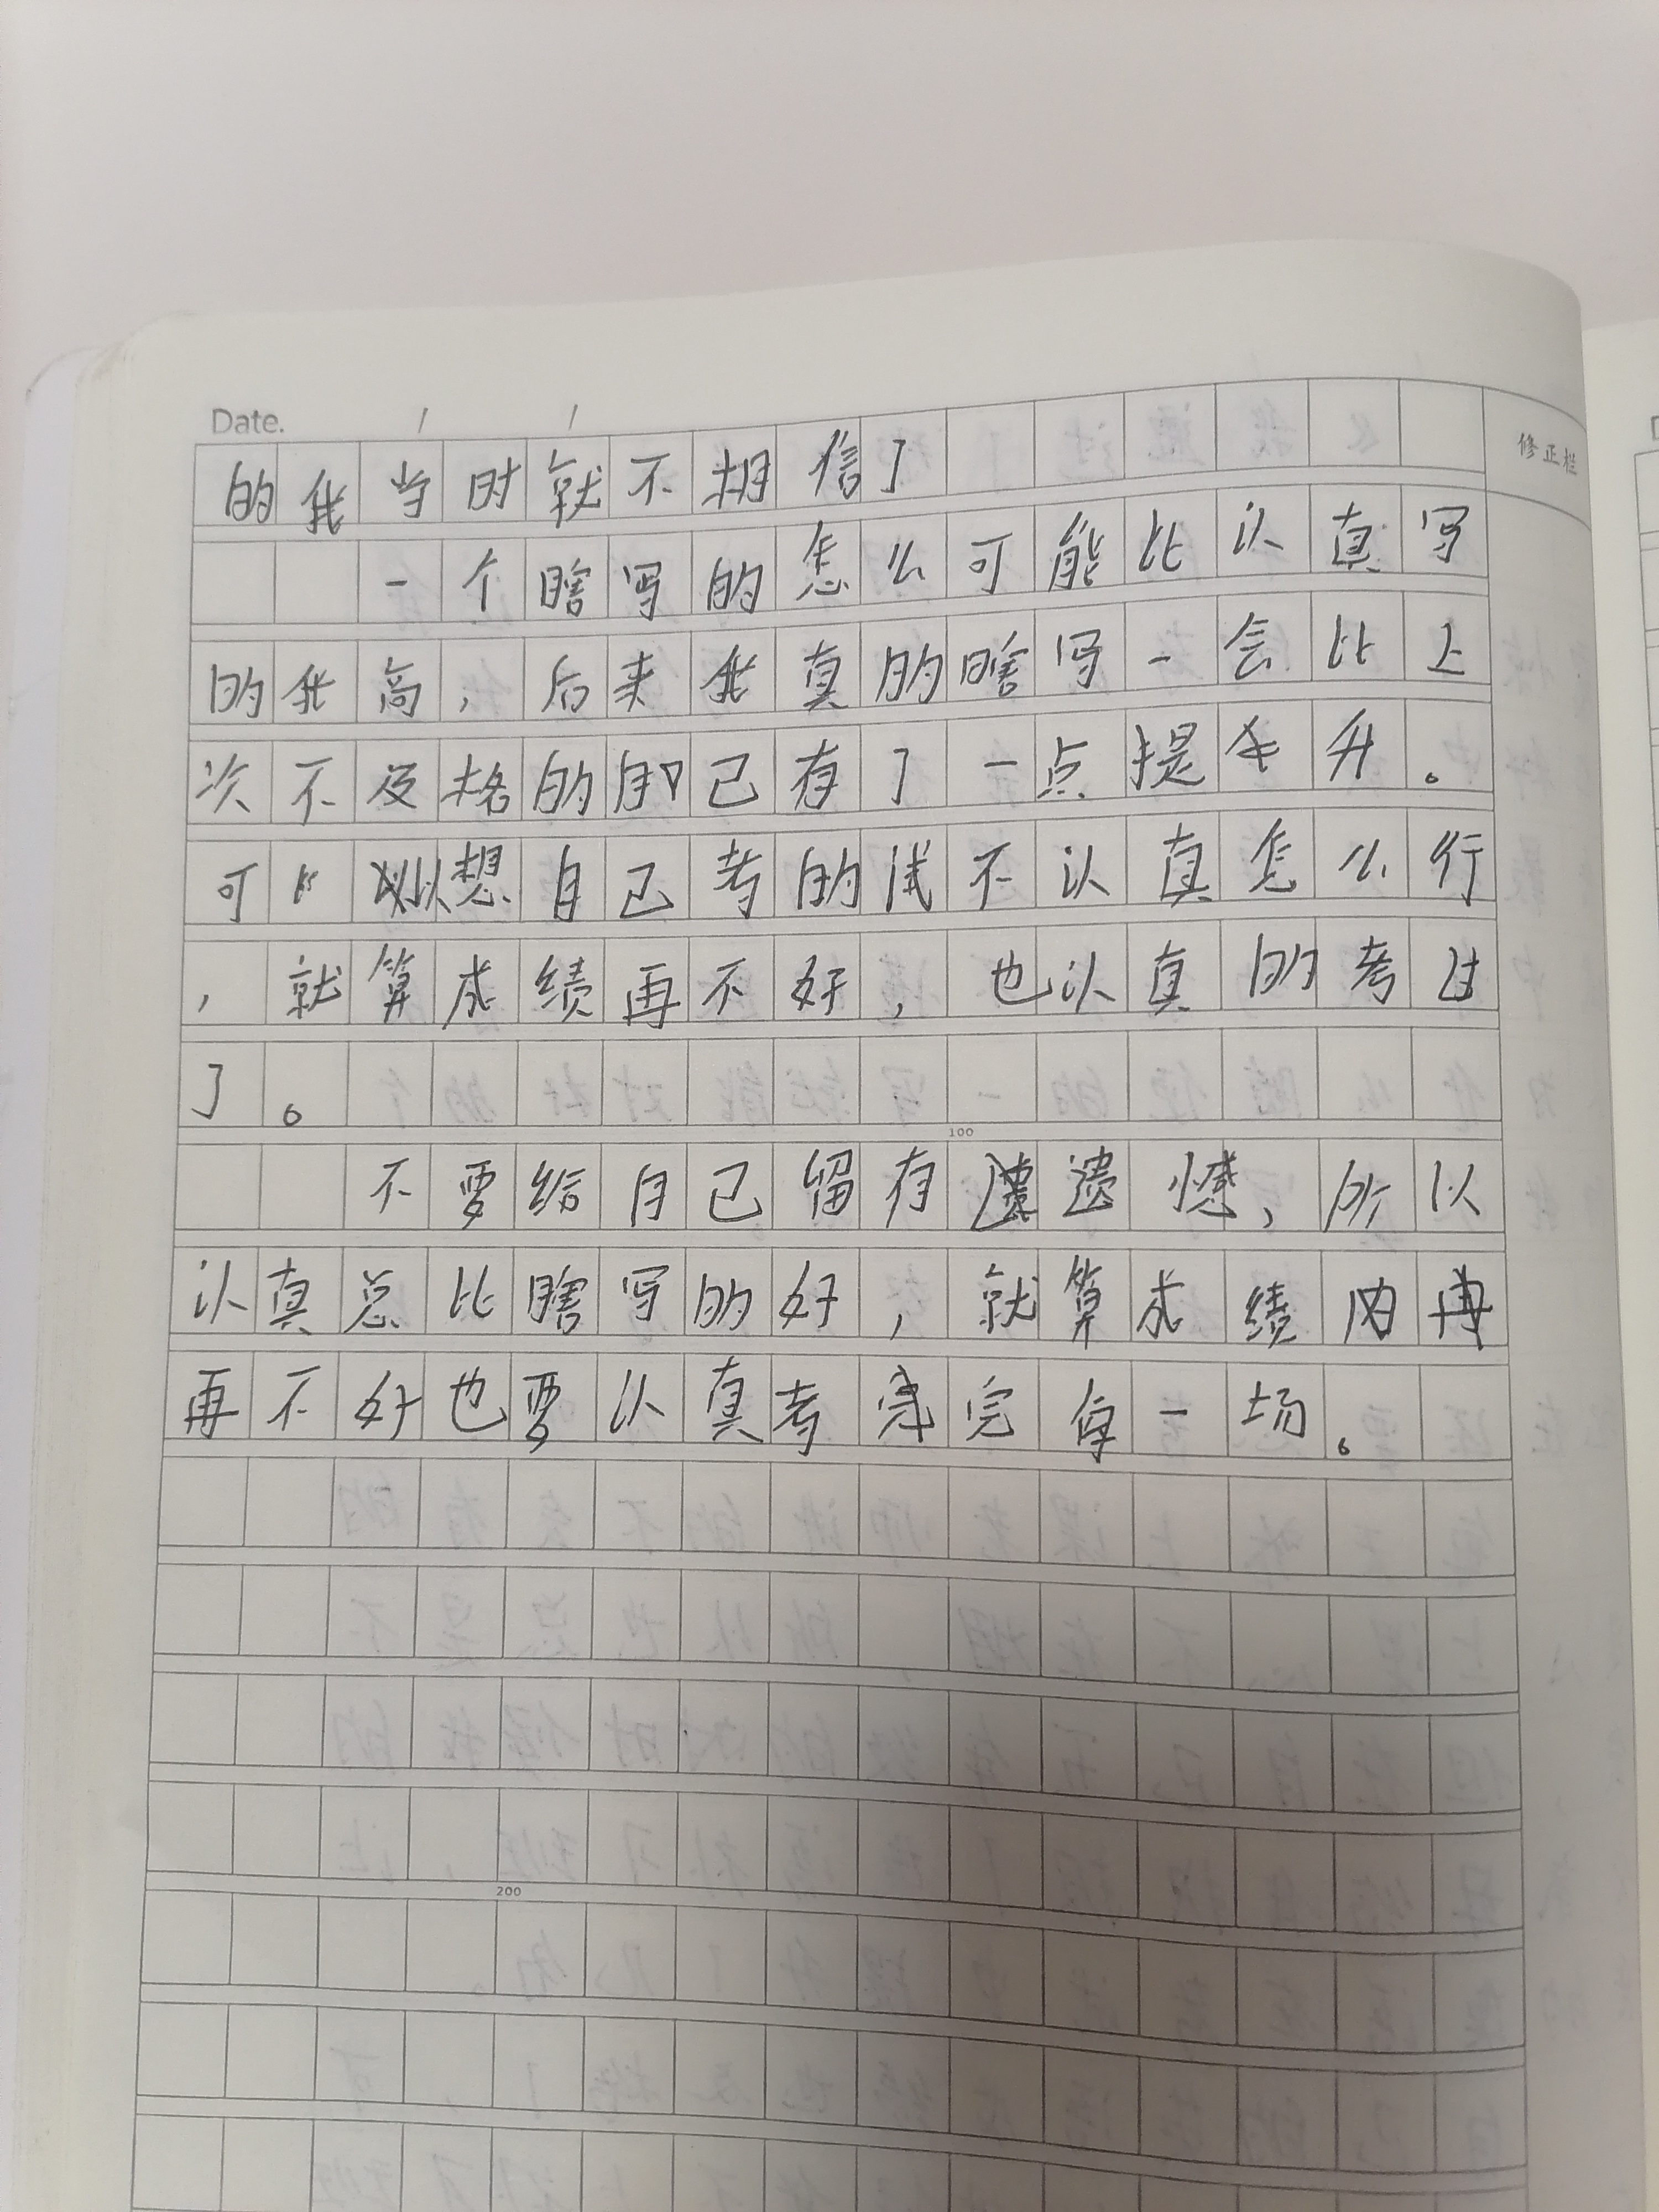 Date. / /
修正栏
的我当时就不相信了
一个瞎写的怎么可能比认真写
的我高，后来我真的瞎写一会比上
次不及格的自己有了一点提升。
可以想自己考的试不认真怎么行
，就算成绩再不好，也认真的考过
了。
100
不要给自己留有遗憾，所以
认真总比瞎写的好，就算成绩
再不好也要认真考完每一场。
200